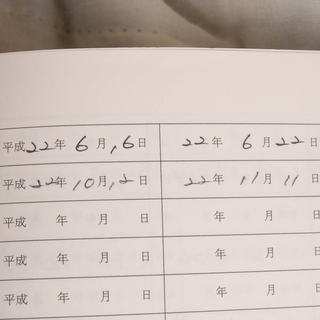 平成22年 6月16日 22年 6月22日
平成22年10月12日 22年11月11日
平成 年 月 日 年 月 日
平成 年 月 日 年 月 日
平成 年 月 日 年 月 日